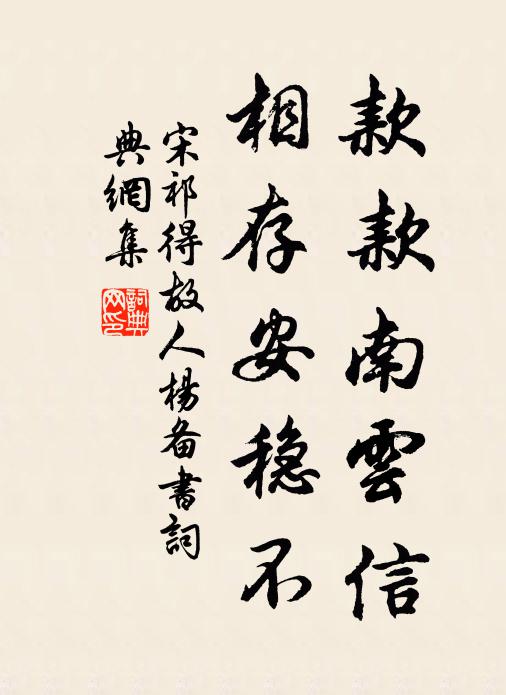 款款南雲信
相存安穏不
宋祁得故人楊备書詞
典網集
詞典网印